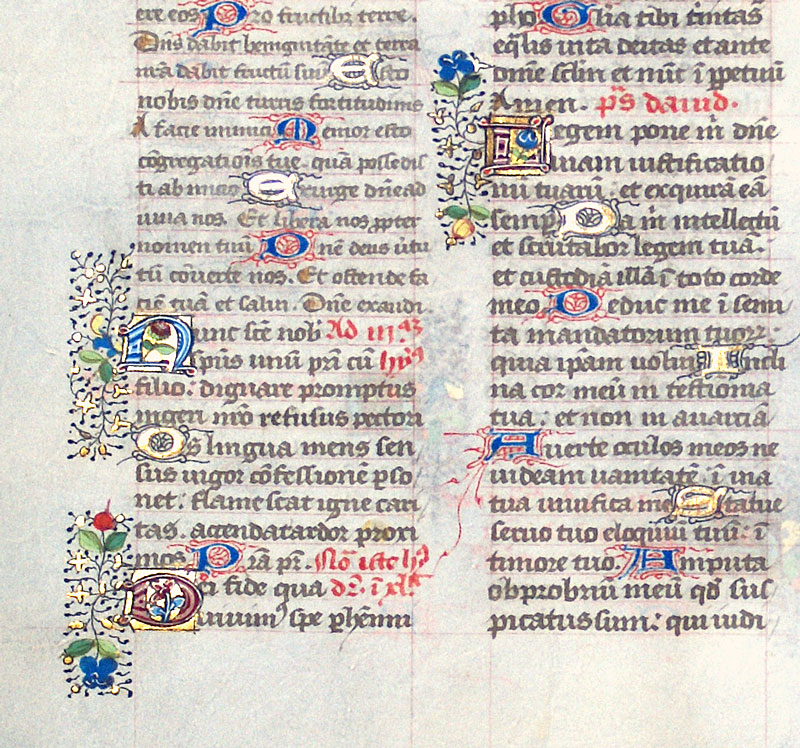 ere eos Pro fructibꝫ terre.
Dn̄s dabit benignitatē et terra
nr̄a dabit fructū suū Esto
nobis dn̄e turris fortitudinis
A facie inimici Memor esto
cōgregatiōis tue. quā possedis
ti ab inicio Exurge dn̄e ad
iuua nos. Et libera nos propter
nomen tuū Domnē deus u̇tu
tū cōuerte nos. Et ostende fa
ciē tuā et salui. Dn̄e exaudi.
Nunc sc̄e nob̄ Ad iij.
sp̄us unū pr̄i cū
filio: dignare promptus
ingeri nr̄o refusus pectori
Os lingua mens sen
sus uigor cōfessionē ꝑso
net: flamescat igne cari
tas. accendat ardor proxi
mos. Pr̄a pr̄.
Dei fide qua
uiuimꝰ spe ꝑhēnni
pho Glīa tibi tīnitas
eq̄lis una deitas et ante
om̄e sc̄lm et nūc ī ꝑpetuū
Amen. ps̄ dauid.
Legem pone m̄ dn̄e
uiam iustificatio
nū tuarū: et exquirā eā
semꝑ Da m̄ intellectū
et scrutabor legem tuā:
et custodiā illā ī toto corde
meo Deduc me ī semi
ta mandatorum tuorꝝ:
quia ip̄am uolui Incli
na cor meū in testīonia
tua: et non in auaritiā
Auerte oculos meos ne
uideam uanitatē: ī uia
tua uiuifica me Statue
seruo tuo eloquiū tuū: ī
timore tuo. Amputa
obprobriū meū qd̄ sus
picatus sum: q̄ iudi